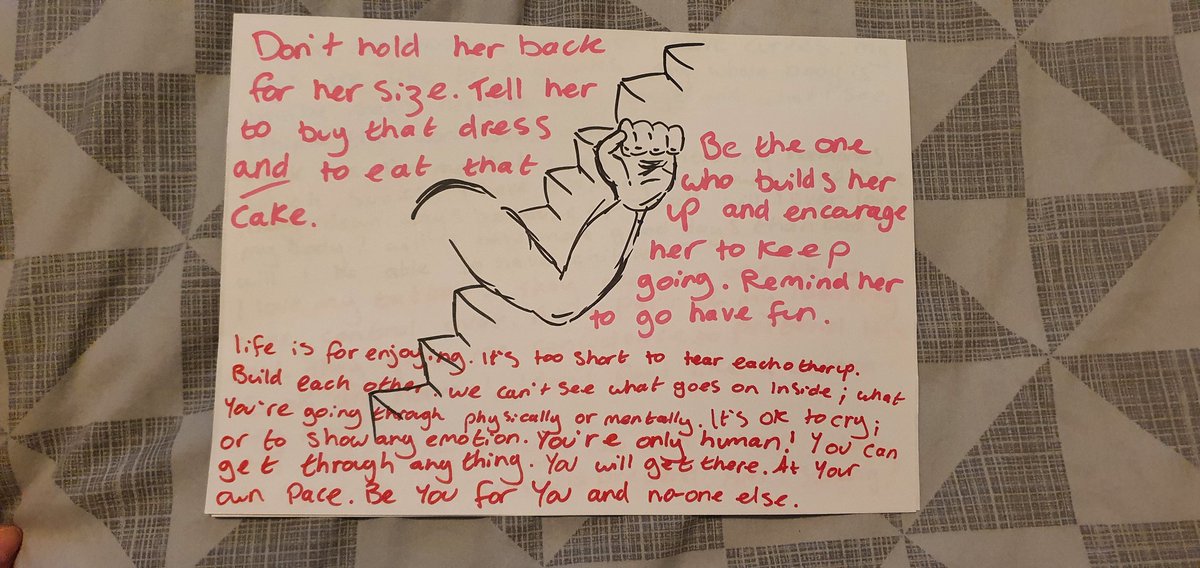 Don't hold her back
for her size. Tell her
to buy that dress
and to eat that
cake.
Be the one
who builds her
up and encarage
her to keep
going. Remind her
to go have fun.
life is for enjoying. It's too short to tear eachotherup.
Build each other, we can't see what goes on inside; what
You're going through physically or mentally. It's ok to cry;
or to show any emotion. You're only human! You can
get through anything. You will get there. At your
own pace. Be You for You and no-one else.